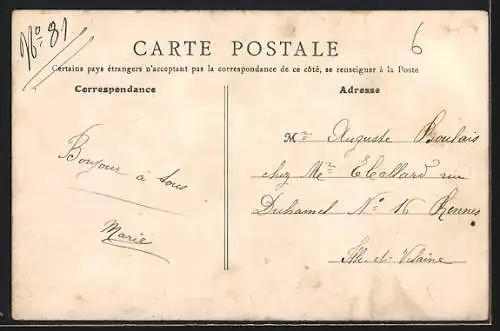 No 81
6
CARTE POSTALE
Certains pays étrangers n'acceptant pas la correspondance de ce côté, se renseigner à la Poste
Correspondance
Adresse
Bonjour à tous
Marie
Mr Auguste Boulais
chez Mr rue
Duhamel No 16 Rennes
Ille-et-Vilaine